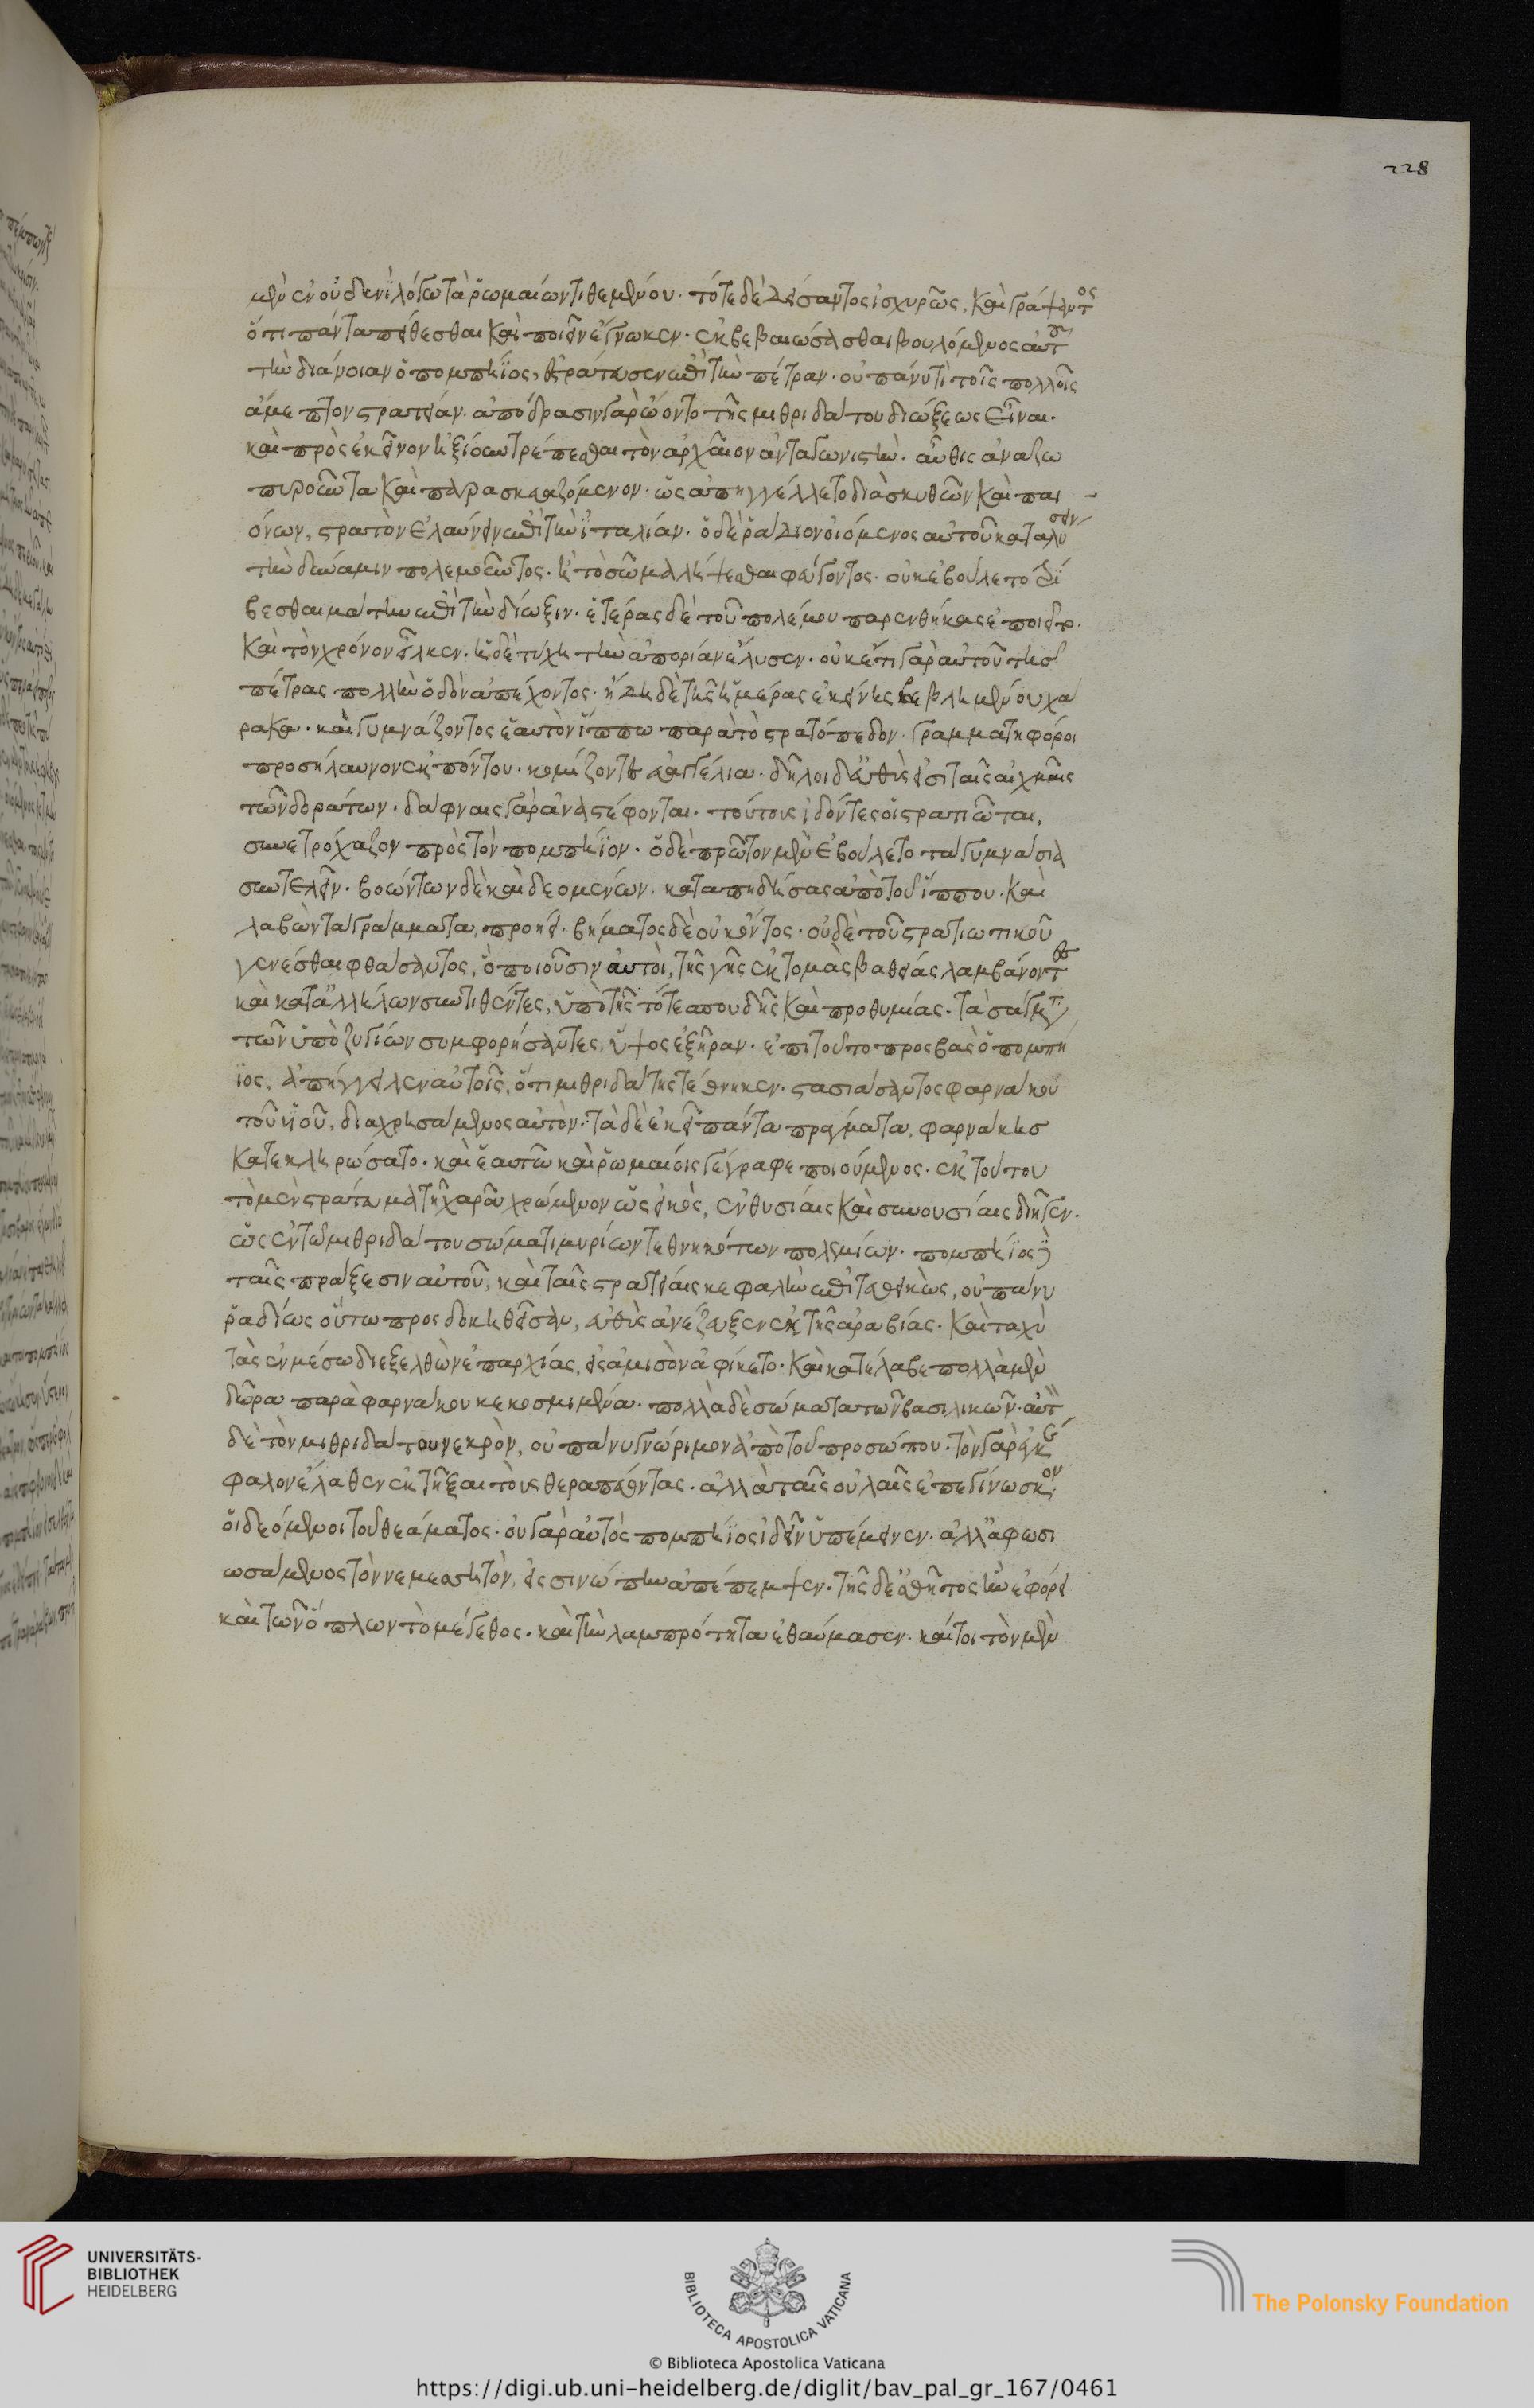 228
μὲν ἐν οὐδενὶ λόγω τὰ ῥωμαίων τιθεμένου. τότε δὲ δείσαντος ἰσχυρῶς, καὶ γράψαντος
ὅτι πάντα πείθεσθαι καὶ ποιεῖν ἔγνωκεν. ἐκβεβαιώσασθαι βουλόμενος αὐτοῦ
τὴν διάνοιαν ὁ πομπήϊος, ἐστράτευσεν ἐπὶ τὴν πέτραν. οὐ πάνυ τι τοῖς πολλοῖς
ἄμεμπτον στρατείαν. ἀπόδρασιν γὰρ ὤοντο τῆς μιθριδάτου διώξεως εἶναι.
καὶ πρὸς ἐκεῖνον ἠξίουν τρέπεσθαι τὸν ἀρχαῖον ἀνταγωνιστὴν. αὖθις ἀναζω
πυροῦντα καὶ παρασκευαζόμενον. ὡς ἀπηγγέλλετο διὰ σκυθῶν καὶ παι -
όνων, στρατὸν ἐλαύνειν ἐπὶ τὴν ἰταλίαν. ὁ δὲ ῥᾶδιον οἰόμενος αὐτοῦ καταλύσειν
τὴν δύναμιν πολεμοῦντος. ἢ τὸ σῶμα λήψεσθαι φεύγοντος. οὐκ ἐβούλετο τρί
βεσθαι μάτην ἐπὶ τὴν δίωξιν. ἑτέρας δὲ τοῦ πολέμου παρενθήκας ἐποιεῖτο.
καὶ τὸν χρόνον εἷλκεν. ἡ δὲ τύχη τὴν ἀπορίαν ἔλυσεν. οὐκέτι γὰρ αὐτοῦ τῆς
πέτρας πολλὴν ὁδὸν ἀπέχοντος. ἤδη δὲ τῆς ἡμέρας ἐκείνης βεβλημένου χά
ρακα. καὶ γυμνάζοντος ἑαυτὸν ἵππω παρὰ τὸ στρατόπεδον. γραμματηφόροι
προσήλαυνον ἐκ πόντου. κομίζοντες εὐαγγέλια. δῆλοι δ' εὐθὺς εἰσὶ ταῖς αἰχμαῖς
τῶν δοράτων. δάφναις γὰρ ἀναστέφονται. τούτους ἰδόντες οἱ στρατιῶται,
συνετρόχαζον πρὸς τὸν πομπήϊον. ὁ δὲ πρῶτον μὲν ἐβούλετο τὰ γυμνάσια
συντελεῖν. βοώντων δὲ καὶ δεομένων. καταπηδήσας ἀπὸ τοῦ ἵππου. καὶ
λαβὼν τὰ γράμματα, προήει. βήματος δὲ οὐκ ὄντος. οὐδὲ τοῦ στρατιωτικοῦ
γενέσθαι φθάσαντος, ὃ ποιοῦσιν αὐτοὶ, τῆς γῆς ἐκτομὰς βαθείας λαμβάνοντες
καὶ κατ' ἀλλήλων συντιθέντες, ὑπὸ τῆς τότε σπουδῆς καὶ προθυμίας. τὰ σάγματα
τῶν ὑποζυγίων συμφορήσαντες, ὕψος ἐξῆραν. ἐπὶ τοῦτο προσβὰς ὁ πομπή
ϊος, ἀπήγγειλεν αὐτοῖς, ὅτι μιθριδάτης τέθνηκεν. στασιάσαντος φαρνάκου
τοῦ υἱοῦ, διαχρησάμενος αὑτὸν. τὰ δὲ ἐκεῖ πάντα πράγματα, φαρνάκης
κατεκληρώσατο. καὶ ἑαυτῶ καὶ ῥωμαίοις γέγραφε ποιούμενος. ἐκ τούτου
τὸ μὲν στράτευμα τῆ χαρᾶ χρώμενον ὡς εἰκὸς, ἐν θυσίαις καὶ συνουσίαις διῆγεν.
ὡς ἐν τῶ μιθριδάτου σώματι μυρίων τεθνηκότων πολεμίων. πομπήϊος δὲ
ταῖς πράξεσιν αὐτοῦ, καὶ ταῖς στρατείαις κεφαλὴν ἐπιτεθεικὼς, οὐ πάνυ
ῥαδίως οὕτω προσδοκηθεῖσαν, εὐθὺς ἀνέζευξεν ἐκ τῆς ἀραβίας. καὶ ταχὺ
τὰς ἐν μέσω διεξελθὼν ἐπαρχίας, εἰς ἀμισὸν ἀφίκετο. καὶ κατέλαβε πολλὰ μὲν
δῶρα παρὰ φαρνάκου κεκοσμιμένα. πολλὰ δὲ σώματα τῶν βασιλικῶν. αὐτὸν
δὲ τὸν μιθριδάτου νεκρὸν, οὐ πάνυ γνώριμον ἀπὸ τοῦ προσώπου. τὸν γὰρ ἐγκέ
φαλον ἔλαθεν ἐκτῆξαι τοὺς θεραπεύοντας. ἀλλὰ ταῖς οὐλαῖς ἐπεγίνωσκον.
οἱ δεόμενοι τοῦ θεάματος. οὐ γὰρ αὐτὸς πομπήϊος ἰδεῖν ὑπέμεινεν. ἀλλ' ἀφοσι
ωσάμενος τὸ νεμεσητὸν, εἰς σινώπην ἀπέπεμψεν. τῆς δ' ἐσθῆτος ἣν ἐφόρει
καὶ τῶν ὅπλων τὸ μέγεθος. καὶ τὴν λαμπρότητα ἐθαύμασεν. καίτοι τὸν μὲν
UNIVERSITÄTS-
BIBLIOTHEK
HEIDELBERG
BIBLIOTECA APOSTOLICA VATICANA
The Polonsky Foundation
© Biblioteca Apostolica Vaticana
https://digi.ub.uni-heidelberg.de/diglit/bav_pal_gr_167/0461